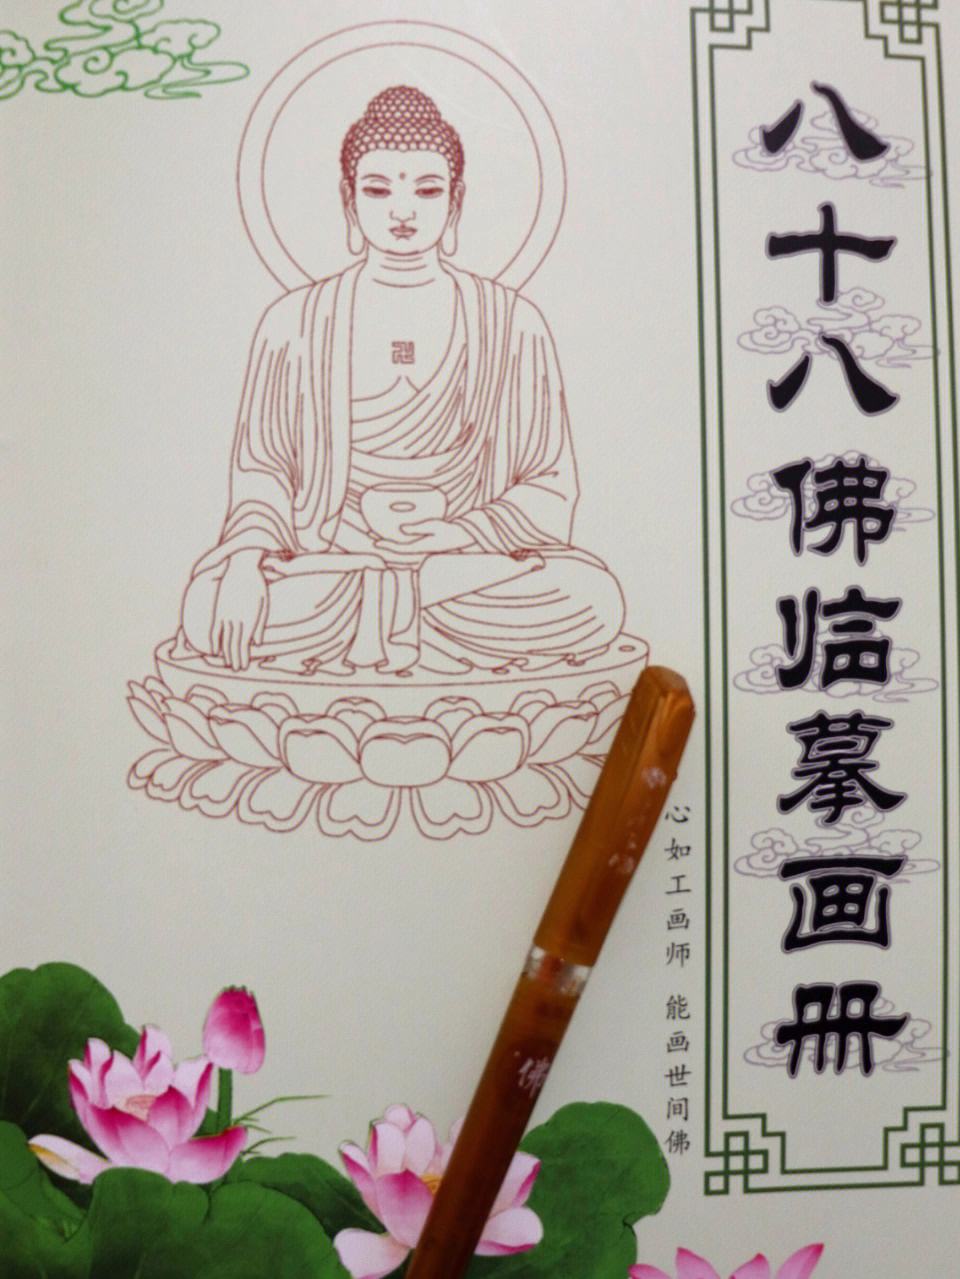 八十八佛临摹画册
心如工画师 能画世间佛
佛